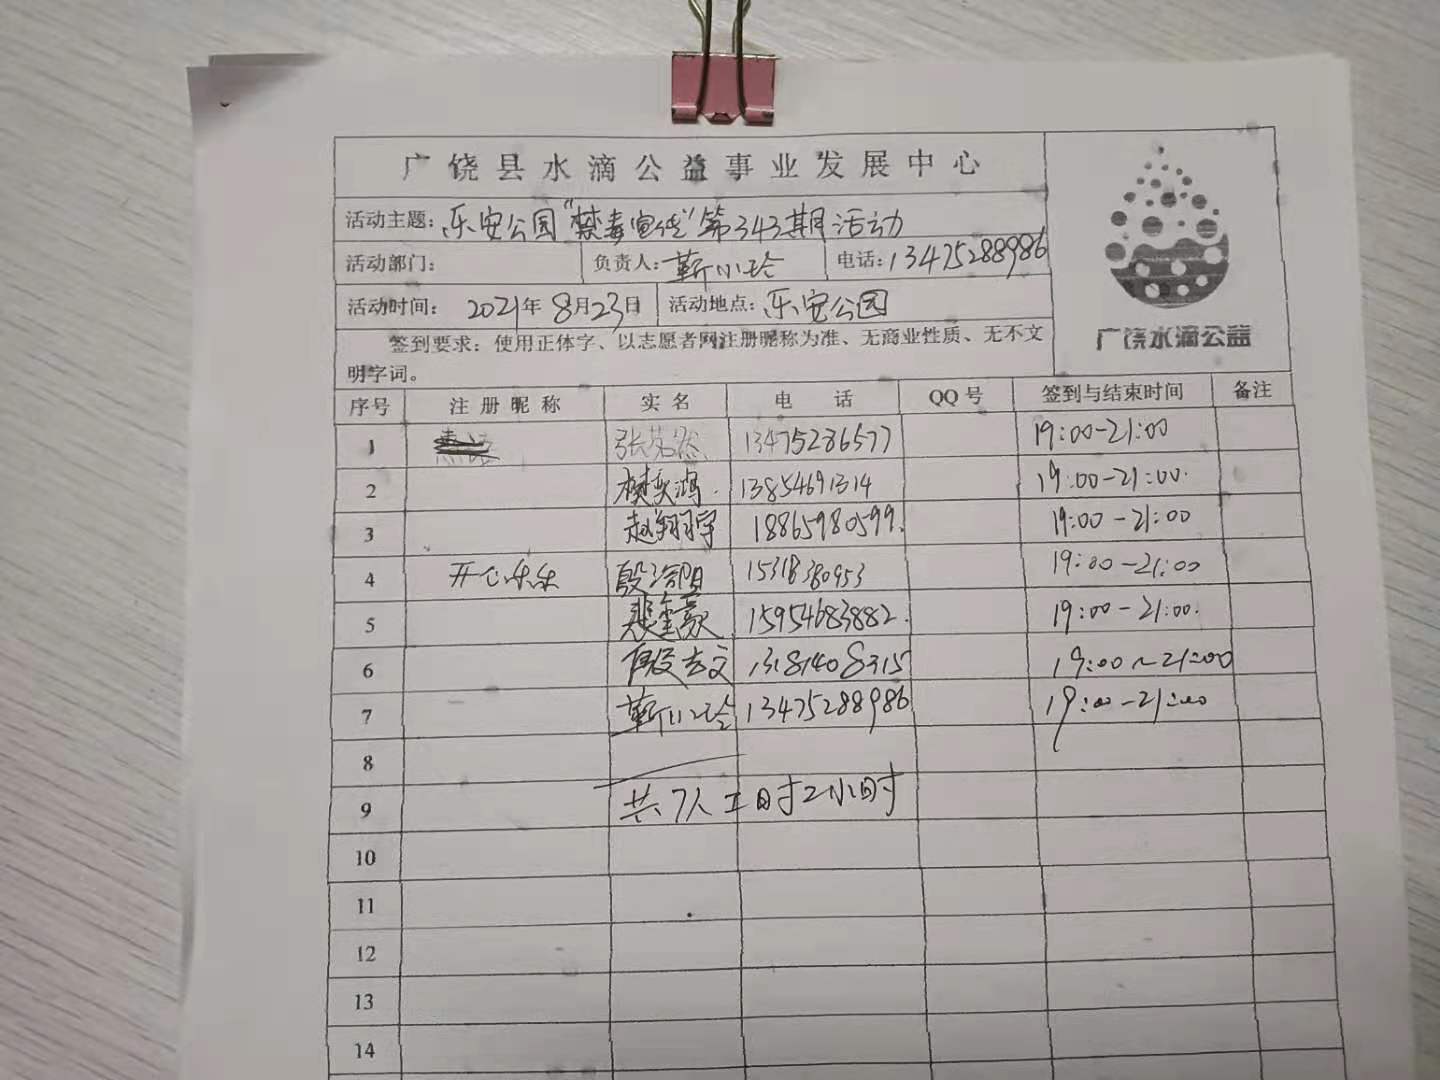 广饶县水滴公益事业发展中心
活动主题：乐安公园“禁毒宣传”第343期活动
活动部门： 负责人：靳小玲 电话：13475288986
活动时间： 2021年8月23日 活动地点：乐安公园
签到要求：使用正体字、以志愿者网注册昵称为准、无商业性质、无不文
明字词。
广饶水滴公益
序号 注册昵称 实名 电 话 QQ号 签到与结束时间 备注
1 13475286577 19:00-21:00
2 13854691314 19:00-21:00.
3 赵翔宇 18865980599. 19:00-21:00
4 开心乐乐 15318380953 19:00-21:00
5 15954683882. 19:00-21:00.
6 殷志文 13181408315 19:00~21:00
7 靳小玲 13475288986 19:00-21:00
8
9 共7人工时2小时
10
11
12
13
14